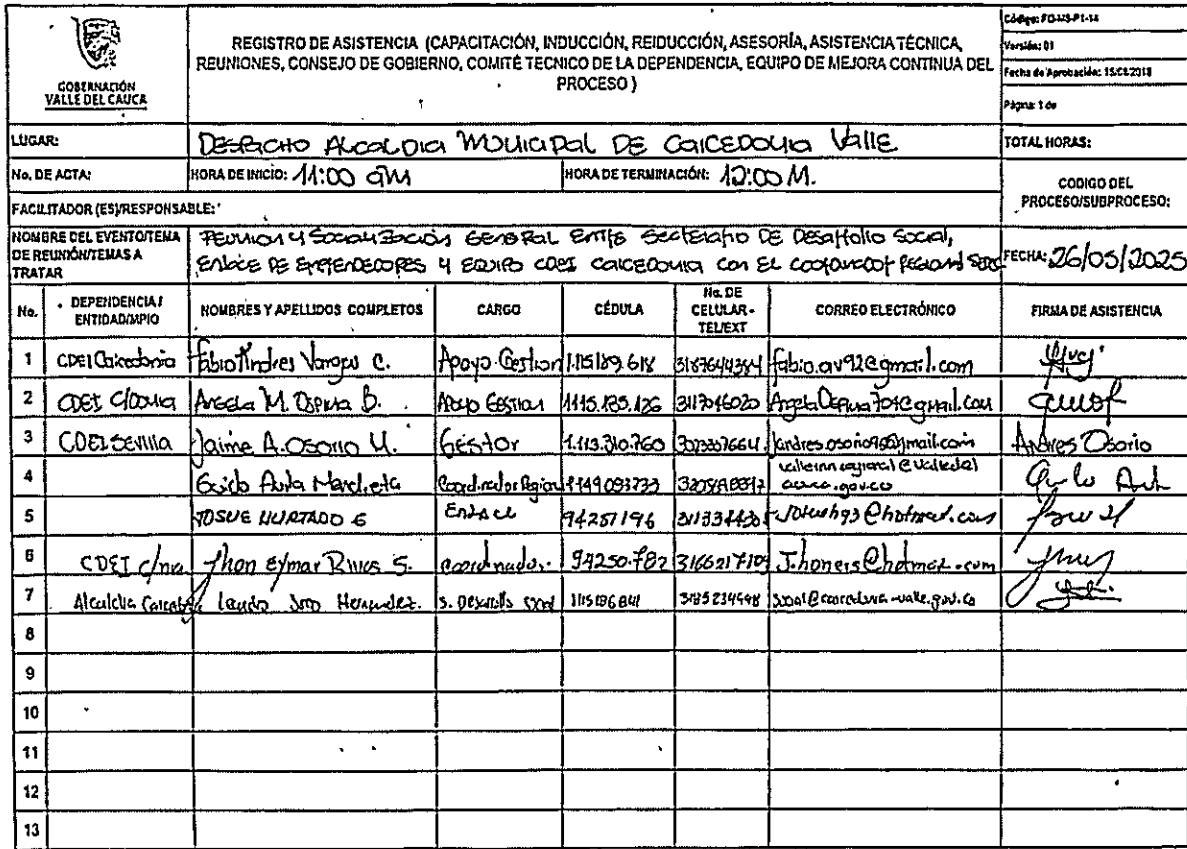 GOBERNACIÓN
VALLE DEL CAUCA
REGISTRO DE ASISTENCIA (CAPACITACIÓN, INDUCCIÓN, REIDUCCIÓN, ASESORÍA, ASISTENCIA TÉCNICA,
REUNIONES, CONSEJO DE GOBIERNO, COMITÉ TECNICO DE LA DEPENDENCIA, EQUIPO DE MEJORA CONTINUA DEL
PROCESO)
Código: FO-M9-P1-14
Versión: 01
Fecha de Aprobación: 15/08/2018
Página: 1 de
LUGAR: DESPACHO ALCALDIA MUNICIPAL DE CAICEDONIA Valle TOTAL HORAS:
No. DE ACTA: HORA DE INICIO: 11:00 am HORA DE TERMINACIÓN: 12:00 M.
CODIGO DEL
PROCESO/SUBPROCESO:
FACILITADOR (ES)/RESPONSABLE:
NOMBRE DEL EVENTO/TEMA
DE REUNIÓN/TEMAS A
TRATAR
REUNION Y SOCIALIZACIÓN GENERAL ENTRE SECRETARIO DE DESARROLLO SOCIAL,
ENLACE DE EMPRENDEDORES Y EQUIPO CDEI CAICEDONIA CON EL COORDINADOR REGIONAL
FECHA: 26/05/2025
No. DEPENDENCIA / ENTIDAD/MPIO NOMBRES Y APELLIDOS COMPLETOS CARGO CÉDULA No. DE CELULAR - TEL/EXT CORREO ELECTRÓNICO FIRMA DE ASISTENCIA
1 CDEI Caicedonia Fabio Andres Vargas C. Apoyo Gestion 1.115.189.618 3187644384 fabio.av92@gmail.com
2 CDEI C/DONIA Angela M. Ospina D. Apoyo GESTION 1115.185.126 3117046020
3 CDEI SEVILLA Jaime A. OSORIO M. GESTOR 1.113.310.760 Andres Osorio
4 Guido Coordinador Region 1149093733
5 JOSUE HURTADO G ENLACE 94257196
6 CDEI c/nia Jhon eymar Rivas S. coordinador. 94250.782 3166217109
7 Alcaldia Hernandez. S. Desarrollo social
8
9
10
11
12
13